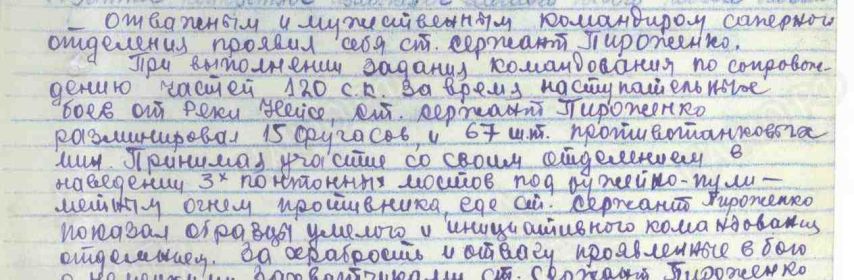 Отважным и мужественным командиром саперного
отделения проявил себя ст. сержант Пироженко.
При выполнении задания командования по сопровож-
дению частей 120 с.к. за время наступательных
боев от реки Нейсе, ст. сержант Пироженко
разминировал 15 фугасов, и 67 шт. противотанковых
мин. Принимая участие со своим отделением в
наведении 3х понтонных мостов под ружейно-пули-
метным огнем противника, где ст. сержант Пироженко
показал образцы умелого и инициативного командования
отделением. За храбрость и отвагу проявленные в бою
с немецкими захватчиками ст. сержант Пироженко